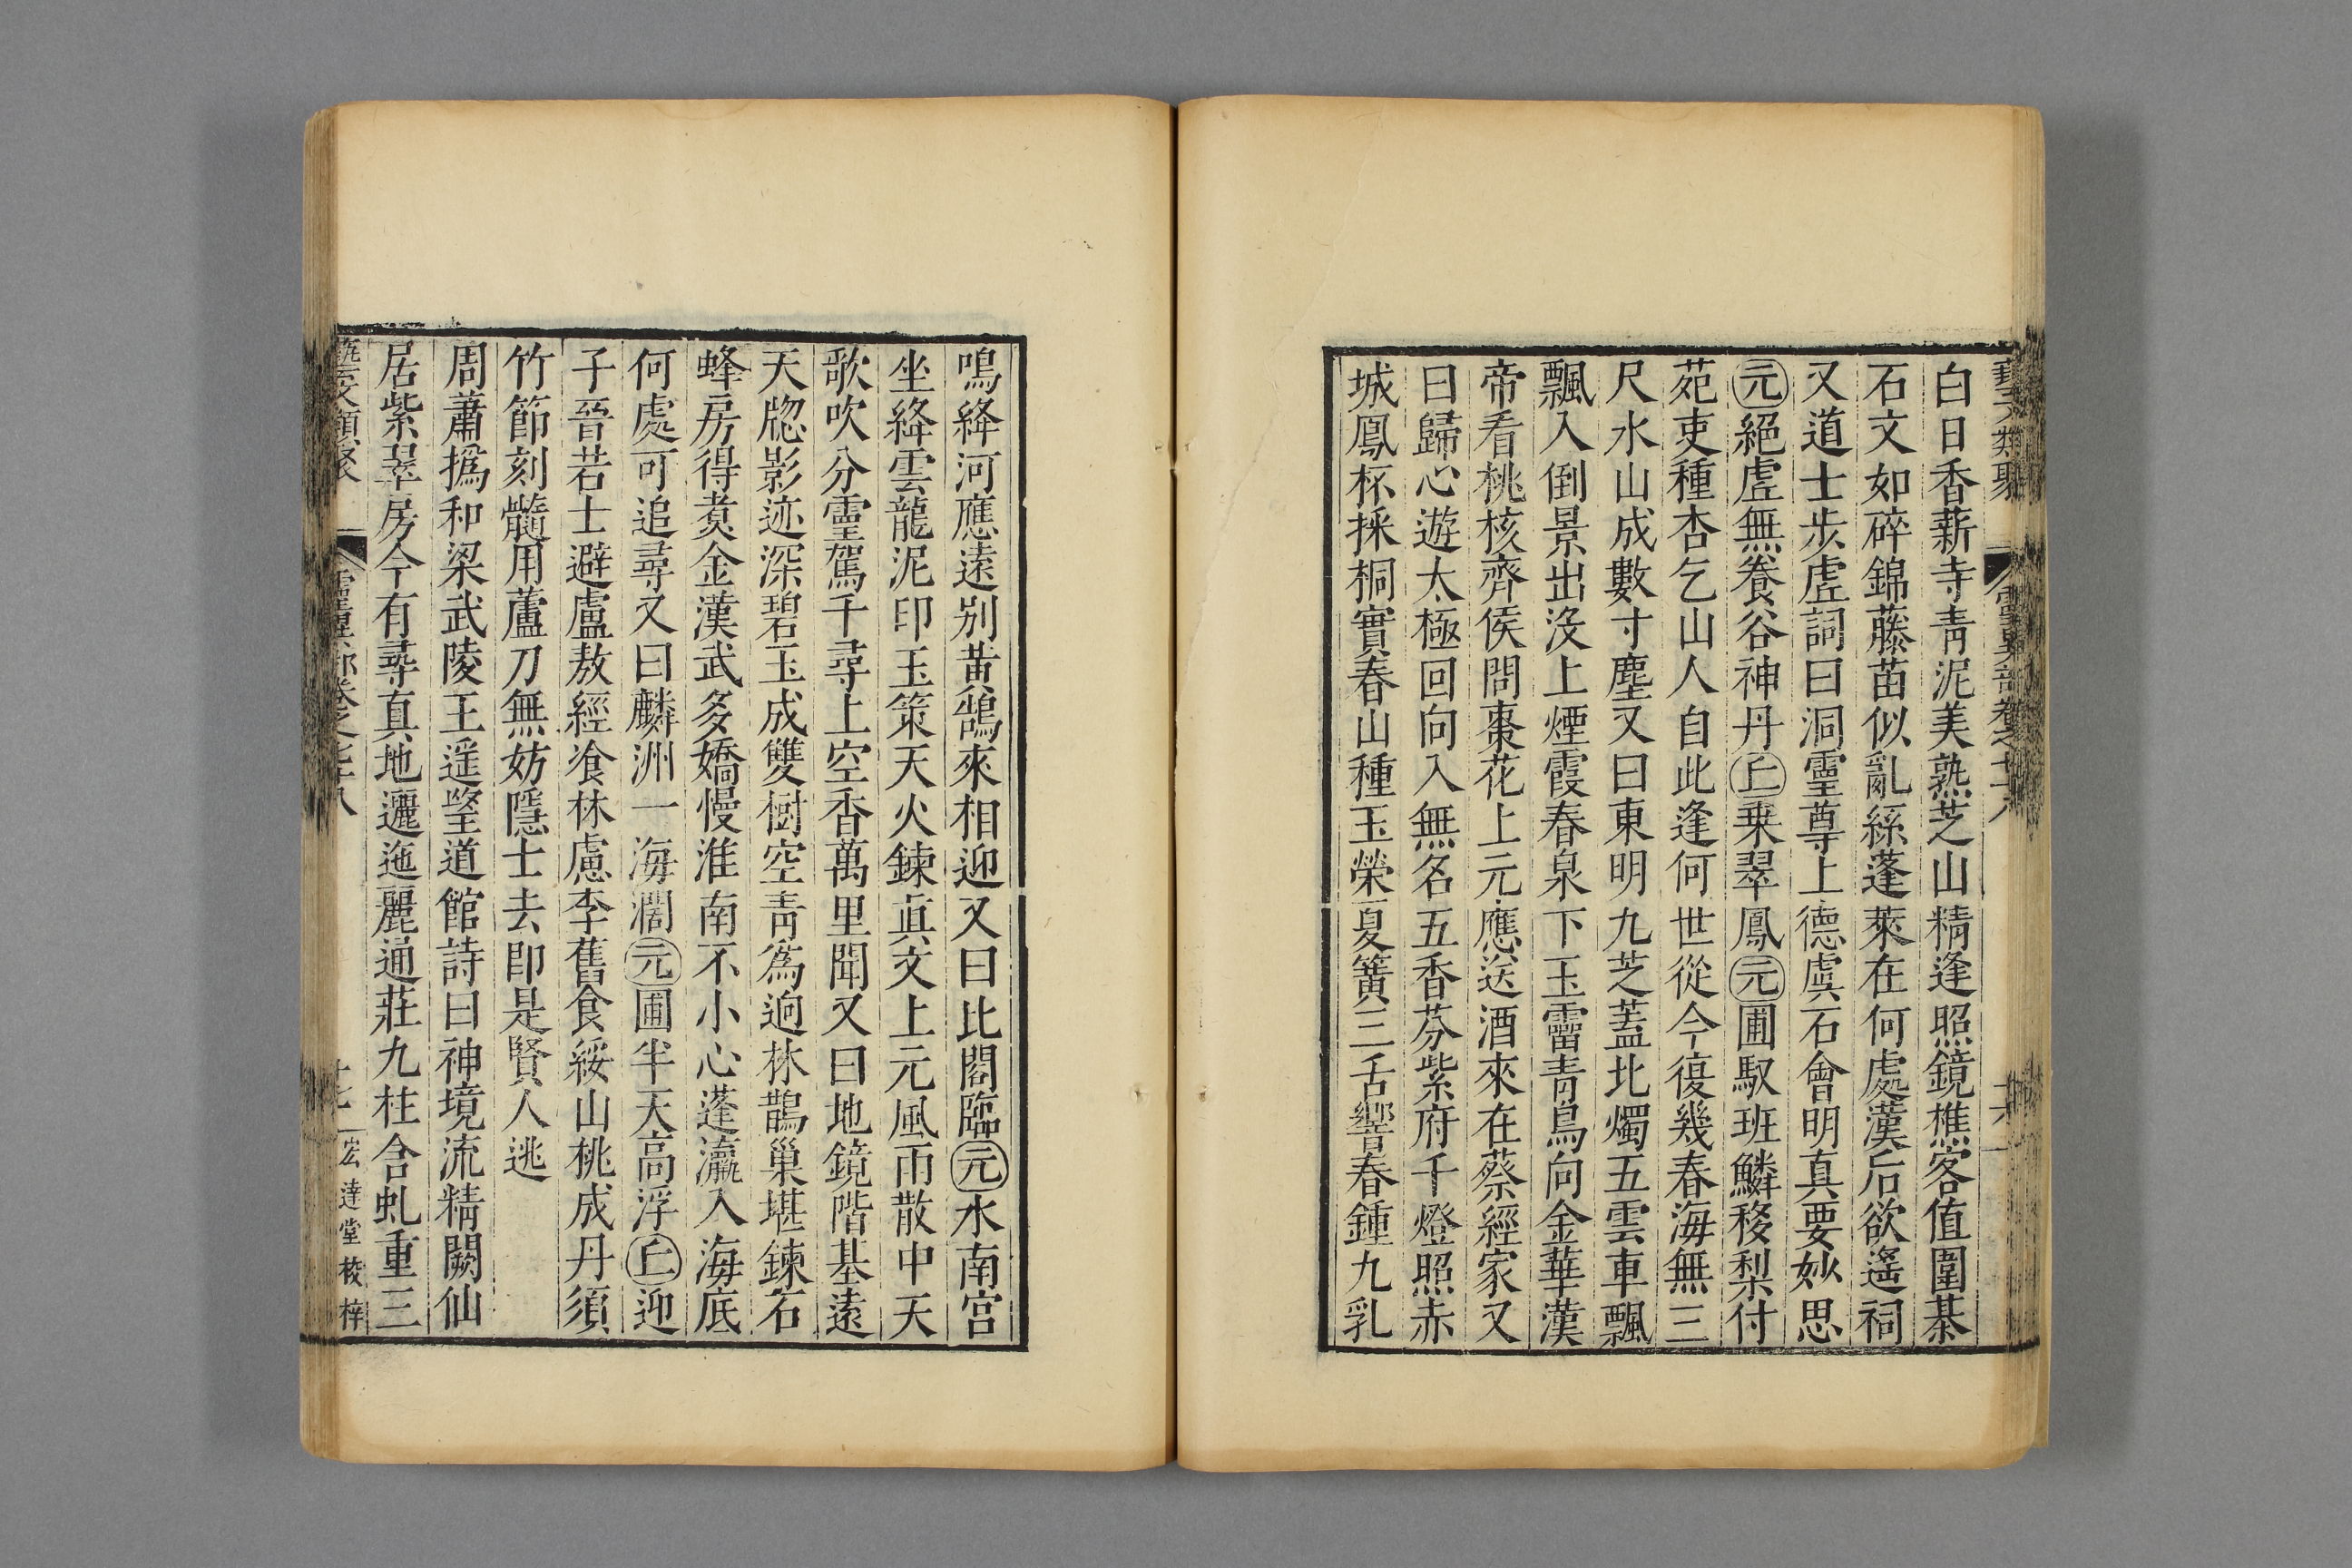 白日香薪寺青泥美熟芝山精逢照鏡樵客值圍棊
石文如碎錦藤苗似亂絲蓬萊在何處漢后欲遙祠
又道士步虛詞曰洞靈尊上德虞石會明真要妙思
元絕虛無養谷神丹丘乗翠鳳元圃馭班鱗移梨付
苑吏種杏乞山人自此逢何世從今復幾春海無三
尺水山成數寸塵又曰東明九芝蓋北燭五雲車飄
飄入倒景出沒上煙霞春泉下玉霤青鳥向金華漢
帝看桃核齊侯問棗花上元應送酒來在蔡經家又
曰歸心遊太極回向入無名五香芬紫府千燈照赤
城鳳杯採桐實春山種玉榮夏簧三舌響春鍾九乳
鳴絳河應遠别黃鵠來相迎又曰比閣臨元水南宮
坐絳雲龍泥印玉策天火鍊真文上元風雨散中天
歌吹分靈駕千尋上空香萬里聞又曰地鏡階基遠
天牕影迹深碧玉成雙樹空青為逈林鵲巢堪鍊石
蜂房得煑金漢武多嬌慢淮南不小心蓬瀛入海底
何處可追尋又曰麟洲一海濶元圃半天高浮丘迎
子晉若士避盧敖經飡林慮李舊食綏山桃成丹須
竹節刻髓用蘆刀無妨隱士去即是賢人逃
周蕭撝和梁武陵王遥望道館詩曰神境流精闕仙
居紫翠房今有尋真地邐迤麗通莊九柱含虬重三
藝文類聚 靈異部卷之七十八 十七 宏達堂校梓